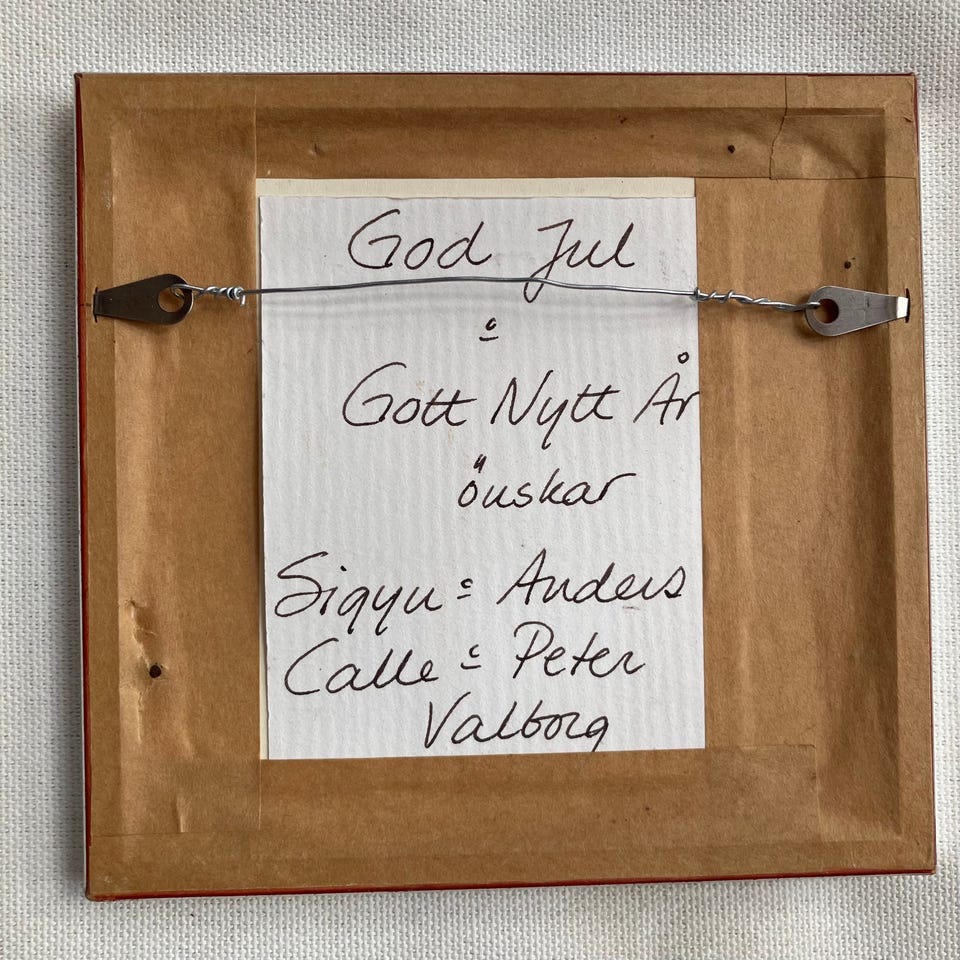 God Jul
o̲
Gott Nytt År
önskar
Sigyn o̲ Anders
Calle o̲ Peter
Valborg